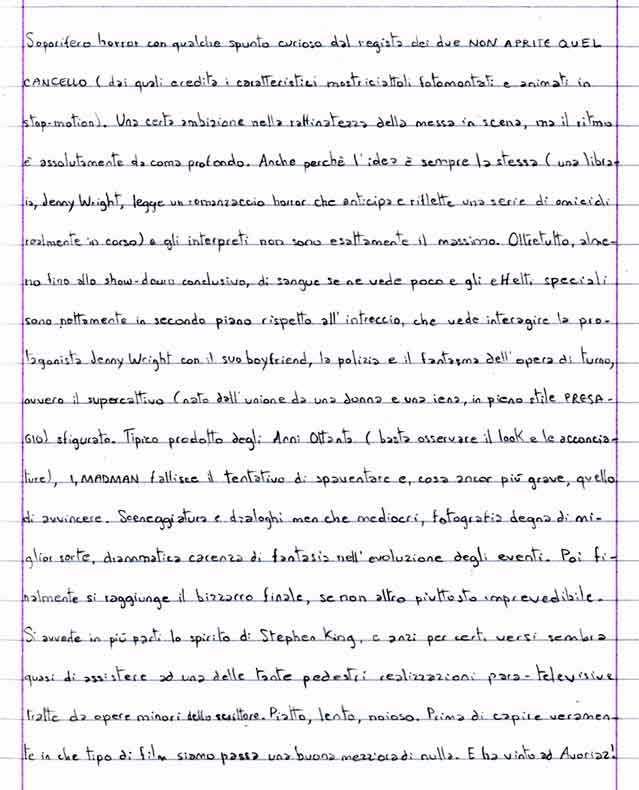 Soporifero horror con qualche spunto curioso dal regista dei due NON APRITE QUEL
CANCELLO (dai quali eredita i caratteristici mostriciattoli fotomontati e animati in
stop-motion). Una certa ambizione nella raffinatezza della messa in scena, ma il ritmo
è assolutamente da coma profondo. Anche perchè l'idea è sempre la stessa (una libra-
ia, Jenny Wright, legge un romanzaccio horror che anticipa e riflette una serie di omicidi
realmente in corso) e gli interpreti non sono esattamente il massimo. Oltretutto, alme-
no fino allo show-down conclusivo, di sangue se ne vede poco e gli effetti speciali
sono nettamente in secondo piano rispetto all'intreccio, che vede interagire la pro-
tagonista Jenny Wright con il suo boyfriend, la polizia e il fantasma dell'opera di turno,
ovvero il supercattivo (nato dall'unione da una donna e una iena, in pieno stile PRESA-
GIO) sfigurato. Tipico prodotto degli Anni Ottanta (basta osservare il look e le acconcia-
ture), I, MADMAN fallisce il tentativo di spaventare e, cosa ancor più grave, quello
di avvincere. Sceneggiatura e dialoghi men che mediocri, fotografia degna di mi-
glior sorte, drammatica carenza di fantasia nell'evoluzione degli eventi. Poi fi-
nalmente si raggiunge il bizzarro finale, se non altro piuttosto imprevedibile.
Si avverte in più parti lo spirito di Stephen King, e anzi per certi versi sembra
quasi di assistere ad una delle tante pedestri realizzazioni para-televisive
tratte da opere minori dello scrittore. Piatto, lento, noioso. Prima di capire veramen-
te in che tipo di film siamo passa una buona mezz'ora di nulla. E ha vinto ad Avoriaz!